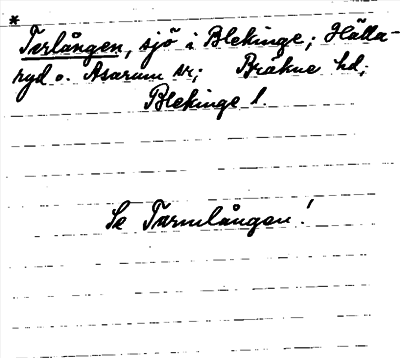 *
Tarlången, sjö i Blekinge; Hälla-
ryd o. Asarum sr; Bräkne hd;
Blekinge l.
Se Tarmlången!